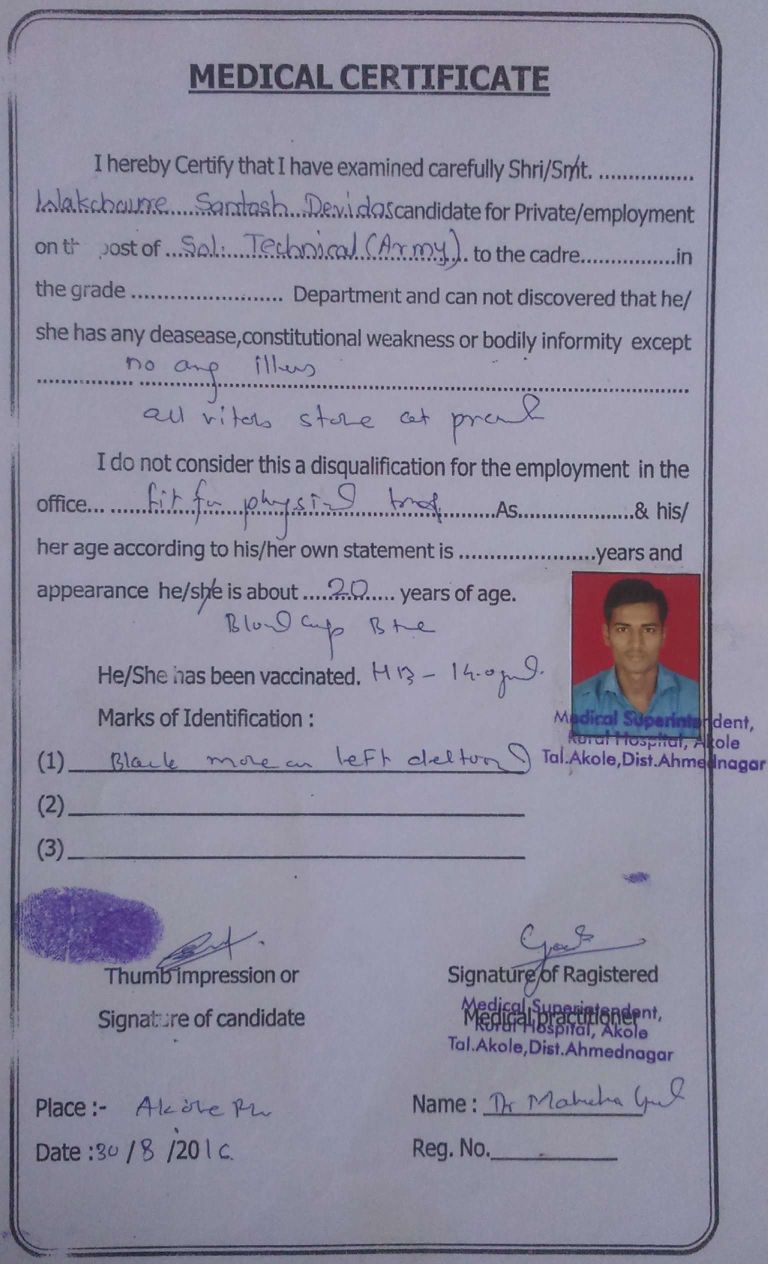 MEDICAL CERTIFICATE
I hereby Certify that I have examined carefully Shri/Smt. ................
Wakchaure Santosh Devidas candidate for Private/employment
on th post of ... Sol. Technical (Army). to the cadre................in
the grade ....................... Department and can not discovered that he/
she has any deasease,constitutional weakness or bodily informity except
no any illness
all vitals stable at present
I do not consider this a disqualification for the employment in the
office... fit for physical ..........As..................& his/
her age according to his/her own statement is .....................years and
appearance he/she is about ....20..... years of age.
Blood Group B +ve
He/She has been vaccinated. HB - 14.0
Marks of Identification :
Medical Superintendent,
Rural Hospital, Akole
Tal.Akole,Dist.Ahmednagar
(1) Black mole on left deltoid
(2)
(3)
Thumb impression or
Signature of candidate
Signature of Ragistered
Medical practitioner
Medical Superintendent,
Rural Hospital, Akole
Tal.Akole,Dist.Ahmednagar
Place :- Akole
Name : Dr
Date :30/8/2016
Reg. No.